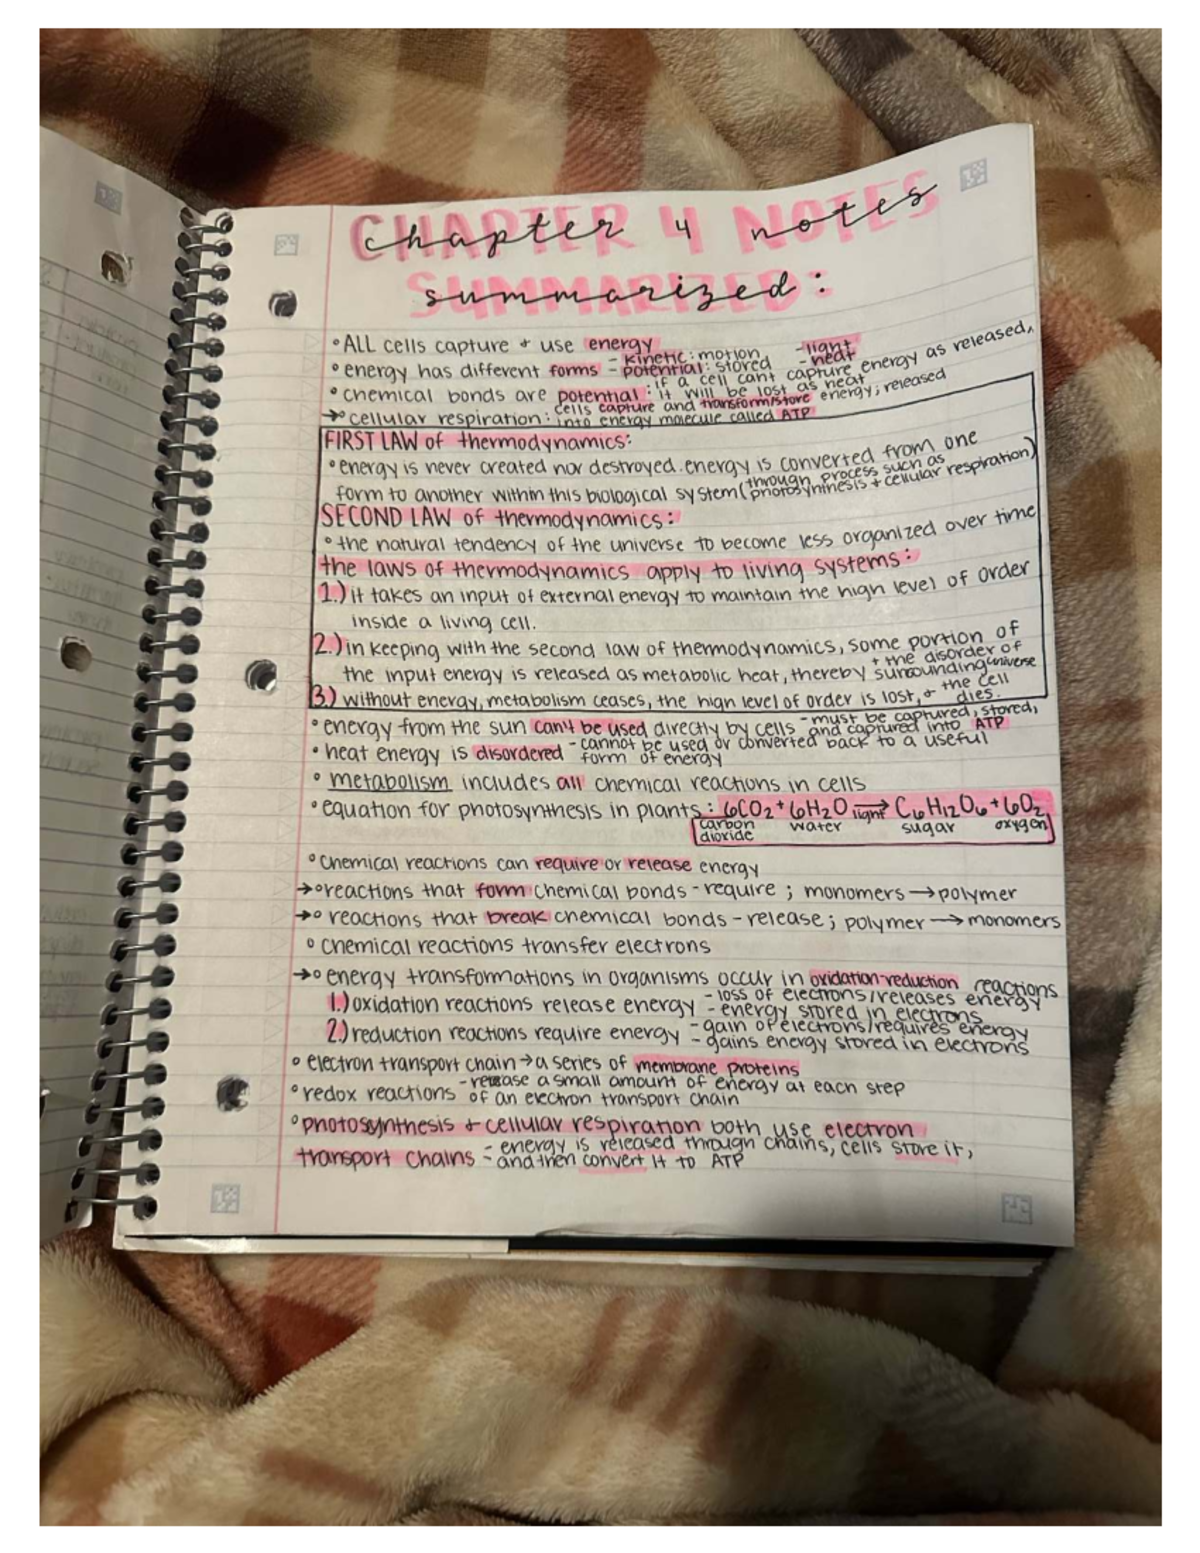 CHAPTER 4 NOTES
chapter 4 notes
SUMMARIZED:
summarized:
°ALL cells capture + use energy
°energy has different forms - kinetic: motion - light
- potential: stored - heat
°chemical bonds are potential: if a cell cant capture energy as released,
it will be lost as heat
→°cellular respiration: cells capture and transform/store energy; released
into energy molecule called ATP
FIRST LAW of thermodynamics:
°energy is never created nor destroyed. energy is converted from one
form to another within this biological system (through process such as
photosynthesis + cellular respiration)
SECOND LAW of thermodynamics:
°the natural tendency of the universe to become less organized over time
the laws of thermodynamics apply to living systems:
1.) it takes an input of external energy to maintain the high level of order
inside a living cell.
2.) in keeping with the second law of thermodynamics, some portion of
the input energy is released as metabolic heat, thereby + the disorder of
surrounding universe
3.) without energy, metabolism ceases, the high level of order is lost, + the cell
dies.
°energy from the sun can't be used directly by cells - must be captured, stored,
and captured into ATP
°heat energy is disordered - cannot be used or converted back to a useful
form of energy
°metabolism includes all chemical reactions in cells
°equation for photosynthesis in plants: 6CO2 + 6H2O light→ C6H12O6 + 6O2
carbon dioxide water sugar oxygen
°chemical reactions can require or release energy
→°reactions that form chemical bonds - require; monomers → polymer
→°reactions that break chemical bonds - release; polymer → monomers
°chemical reactions transfer electrons
→°energy transformations in organisms occur in oxidation-reduction reactions
1.) oxidation reactions release energy - loss of electrons/releases energy
- energy stored in electrons
2.) reduction reactions require energy - gain of electrons/requires energy
- gains energy stored in electrons
°electron transport chain → a series of membrane proteins
°redox reactions - release a small amount of energy at each step
of an electron transport chain
°photosynthesis + cellular respiration both use electron
transport chains - energy is released through chains, cells store it,
- and then convert it to ATP